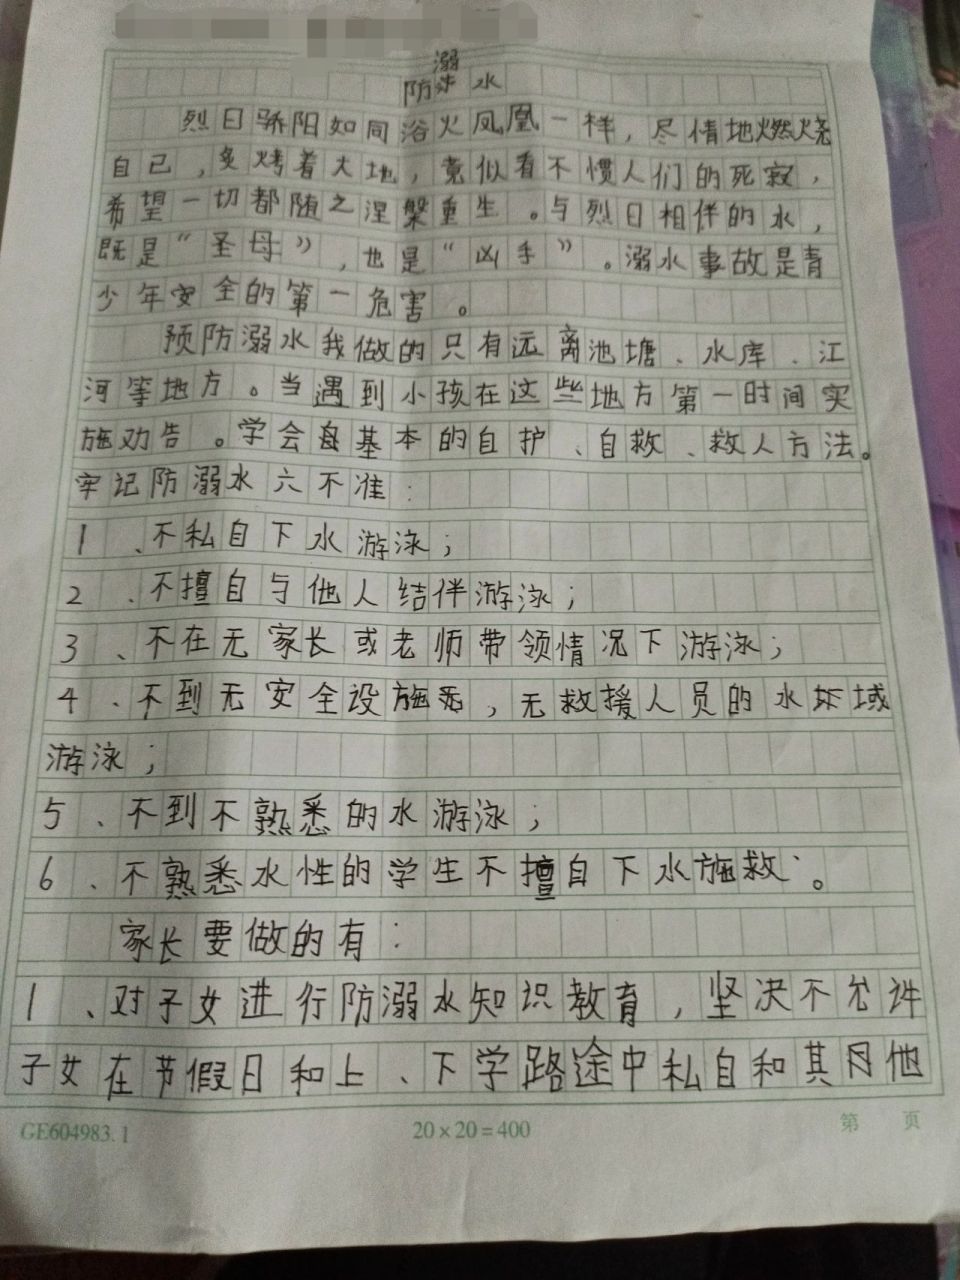 防溺水
烈日骄阳如同浴火凤凰一样，尽情地燃烧
自己，炙烤着大地，竟似看不惯人们的死寂，
希望一切都随之涅槃重生。与烈日相伴的水，
既是“圣母”，也是“凶手”。溺水事故是青
少年安全的第一危害。
预防溺水我做的只有远离池塘、水库、江
河等地方。当遇到小孩在这些地方第一时间实
施劝告。学会每基本的自护、自救、救人方法。
牢记防溺水六不准：
1、不私自下水游泳；
2、不擅自与他人结伴游泳；
3、不在无家长或老师带领情况下游泳；
4、不到无安全设施，无救援人员的水域
游泳；
5、不到不熟悉的水游泳；
6、不熟悉水性的学生不擅自下水施救。
家长要做的有：
1、对子女进行防溺水知识教育，坚决不允许
子女在节假日和上、下学路途中私自和其他
GE604983.1
20×20=400
第 页